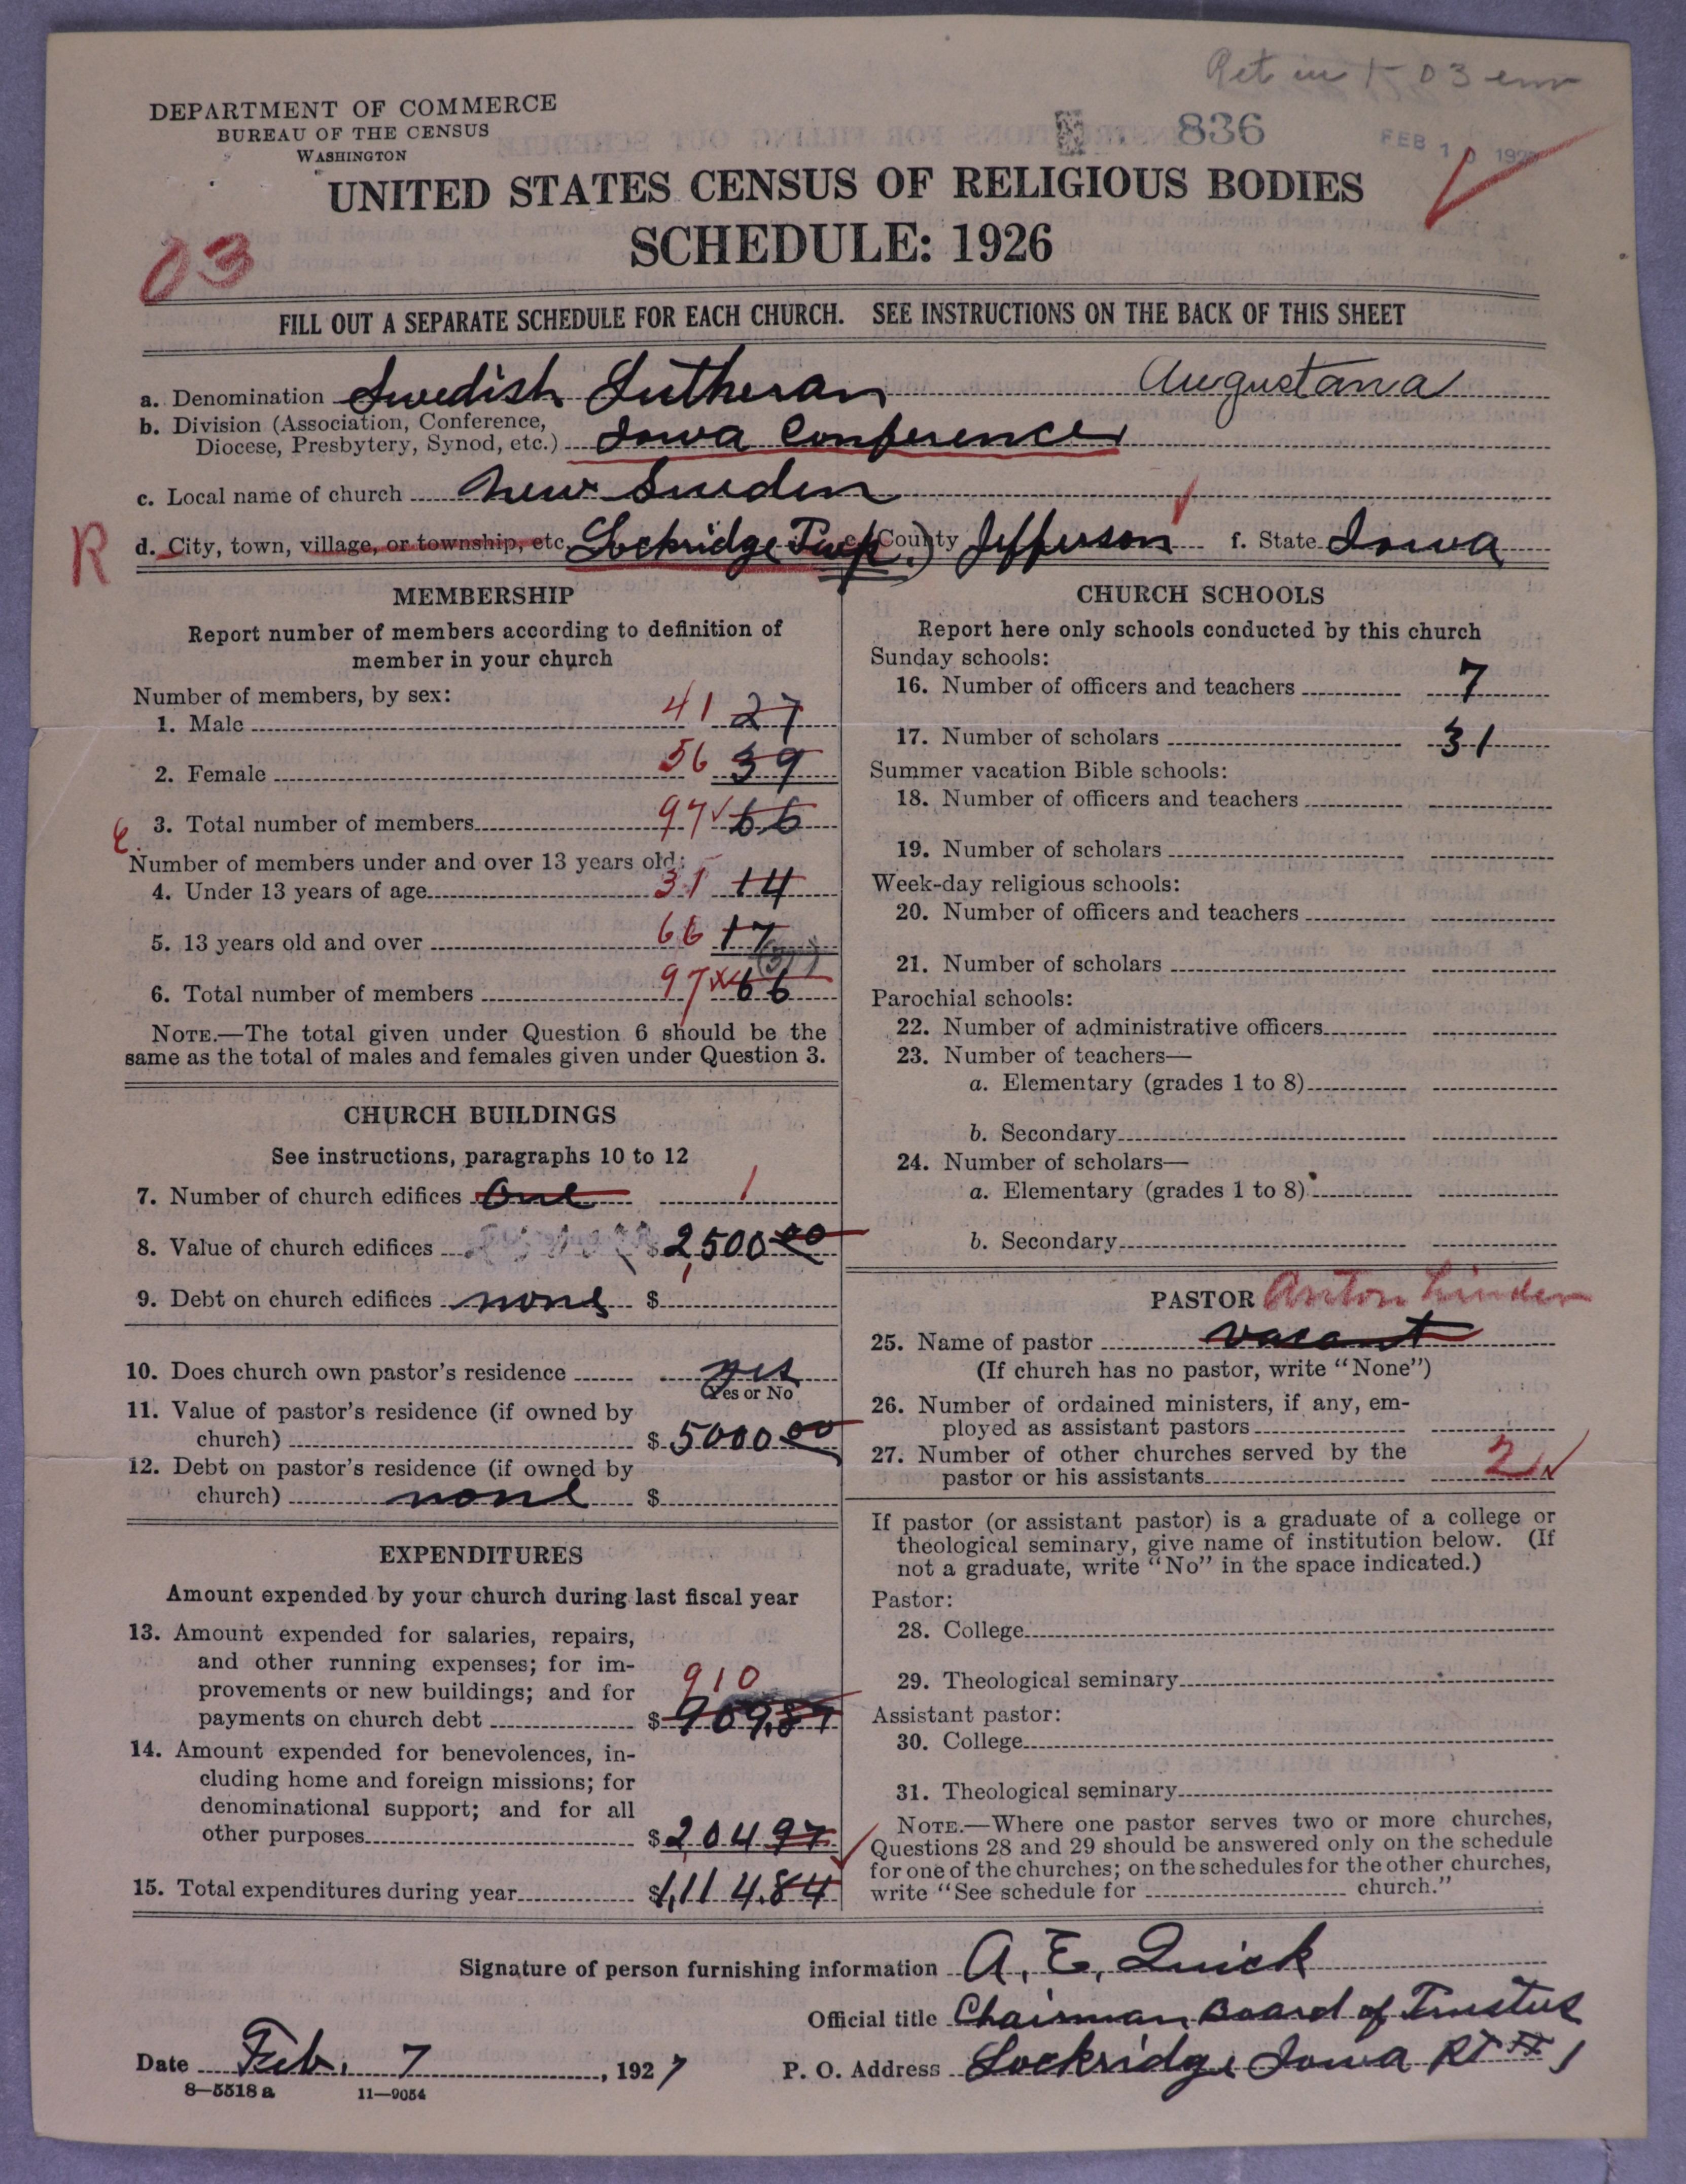 Ret in 03 env
DEPARTMENT OF COMMERCE
BUREAU OF THE CENSUS
WASHINGTON
836
FEB 10 192
UNITED STATES CENSUS OF RELIGIOUS BODIES
SCHEDULE: 1926
03
FILL OUT A SEPARATE SCHEDULE FOR EACH CHURCH. SEE INSTRUCTIONS ON THE BACK OF THIS SHEET
a. Denomination Swedish Lutheran Augustana
b. Division (Association, Conference,
Diocese, Presbytery, Synod, etc.) Iowa Conference
c. Local name of church New Sweden
R d. City, town, village, or township, etc. Lockridge Twp. e. County Jefferson f. State Iowa
MEMBERSHIP
Report number of members according to definition of
member in your church
Number of members, by sex:
1. Male 41 27
2. Female 56 39
3. Total number of members 97 66
Number of members under and over 13 years old:
4. Under 13 years of age 31 14
5. 13 years old and over 66 17
(31)
6. Total number of members 97 66
NOTE.—The total given under Question 6 should be the
same as the total of males and females given under Question 3.
CHURCH BUILDINGS
See instructions, paragraphs 10 to 12
7. Number of church edifices One 1
8. Value of church edifices $ 2,500 00
9. Debt on church edifices none $
10. Does church own pastor's residence yes
(Yes or No)
11. Value of pastor's residence (if owned by
church) $ 5000 00
12. Debt on pastor's residence (if owned by
church) none $
EXPENDITURES
Amount expended by your church during last fiscal year
13. Amount expended for salaries, repairs,
and other running expenses; for im-
provements or new buildings; and for
910
payments on church debt $ 909.87
14. Amount expended for benevolences, in-
cluding home and foreign missions; for
denominational support; and for all
other purposes $ 204 97
15. Total expenditures during year $ 1,114.84
CHURCH SCHOOLS
Report here only schools conducted by this church
Sunday schools:
16. Number of officers and teachers 7
17. Number of scholars 31
Summer vacation Bible schools:
18. Number of officers and teachers
19. Number of scholars
Week-day religious schools:
20. Number of officers and teachers
21. Number of scholars
Parochial schools:
22. Number of administrative officers
23. Number of teachers—
a. Elementary (grades 1 to 8)
b. Secondary
24. Number of scholars—
a. Elementary (grades 1 to 8)
b. Secondary
PASTOR Anton Linder
25. Name of pastor vacant
(If church has no pastor, write "None")
26. Number of ordained ministers, if any, em-
ployed as assistant pastors
27. Number of other churches served by the
pastor or his assistants 2
If pastor (or assistant pastor) is a graduate of a college or
theological seminary, give name of institution below. (If
not a graduate, write "No" in the space indicated.)
Pastor:
28. College
29. Theological seminary
Assistant pastor:
30. College
31. Theological seminary
NOTE.—Where one pastor serves two or more churches,
Questions 28 and 29 should be answered only on the schedule
for one of the churches; on the schedules for the other churches,
write "See schedule for church."
Signature of person furnishing information A. E. Quick
Official title Chairman Board of Trustees
Date Feb. 7, 1927 P. O. Address Lockridge Iowa Rt # 1
8—5518 a 11—9054